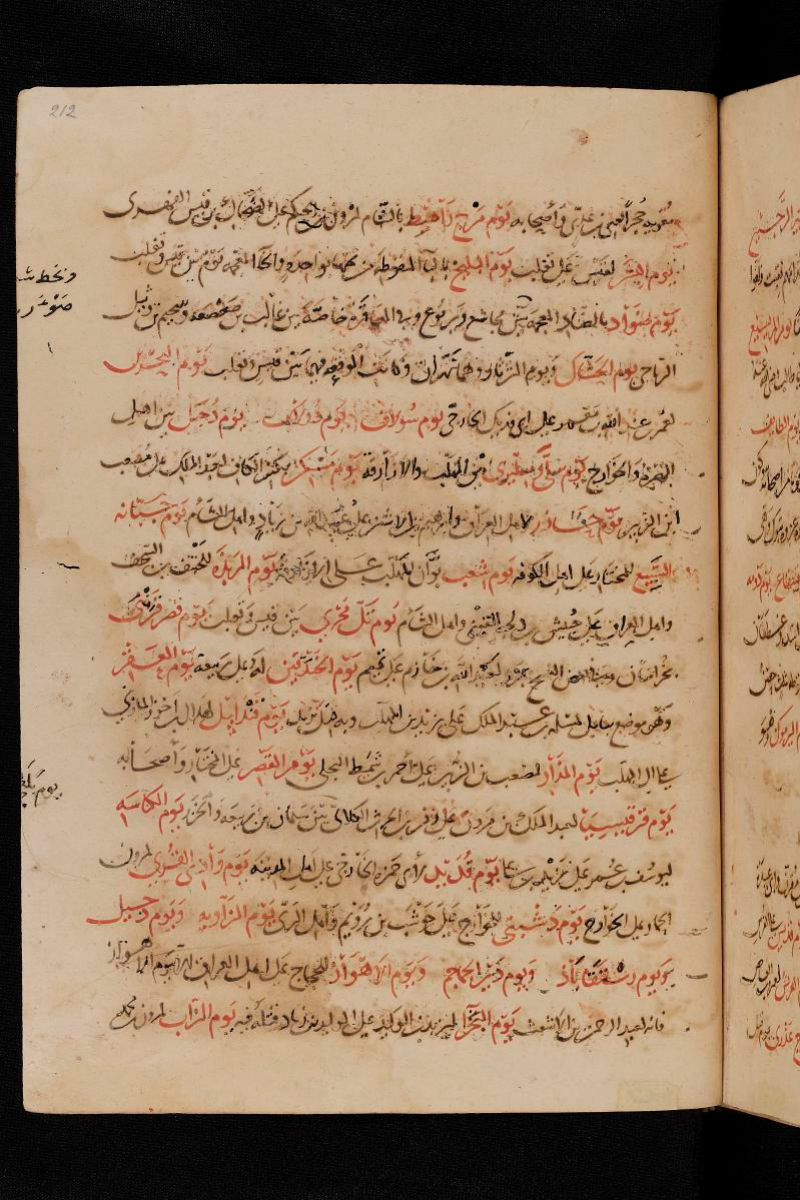 212
معوية حجرا لعنى بن عدى وأصحابه يوم مرج راهط بالشام لمرون بن الحكم على الضحاك بن قيس الفهرى
يوم البشر لقيس على تغلب يوم البليخ بالباء المنقوطة من تحتها بواحدة والخاء المعجمة يوم بين قيس وتغلب
يوم صوأر بالضاد المعجمة بين مجاشع ويربوع وهى المعاقرة خاصة بين غالب بن صعصعة وسحيم بن وثيل
الرياحى يوم الحشاك ويوم الثرثار وهما نهران وكانت الوقعة فيهما بين قيس وتغلب يوم البحرين
لعمر بن عبد الله بن معمر على ابى فديك الخارجى يوم سولاف يوم دولاب يوم دجيل بين اهل
البصرة والخوارج يوم سلى وسلبرى بين المهلب والازارقة يوم مسكن بكسر الكاف لعبد الملك على مصعب
ابن الزبير يوم خازر لاهل العراق وابرهيم بن الاشتر على عبيد الله بن زياد واهل الشام يوم جبانة
السبيع للمختار على اهل الكوفة يوم شعب بوان للمهلب على الازارقة يوم الربذة للحنتف بن السجف
واهل العراق على حبيش بن دلجة القينى واهل الشام يوم تل مجرى بين قيس وتغلب يوم قصر قرنبى
بخراسان لعبد الله بن خازم على تميم يوم الخندقين له على ربيعة يوم العقر
وهى موضع ببابل لمسلمة بن عبد الملك على يزيد بن المهلب وبه قتل يزيد يوم قندابيل لهلال بن احوز المازنى
على ال المهلب يوم المذار لمصعب بن الزبير على احمر بن شميط البجلى يوم القصر على المختار وأصحابه
يوم قرقيسيا لعبد الملك بن مرون على زفر بن الحرث الكلابى يوم الكناسة
ليوسف بن عمر على زيد بن على يوم قديد لابى حمزة الخارجى على اهل المدينة يوم وادى القرى لمرون
الحمار على الخوارج يوم دشتبى للخوارج على حوشب بن رويم واهل الرى يوم الزاوية ويوم دجيل
ويوم رستقاباذ ويوم دير الجماجم ويوم الاهواز للحجاج على اهل العراق الا يوم الاهواز
فانه لعبد الرحمن بن الاشعث يوم البخرا ليزيد بن الوليد على الوليد بن يزيد قتله فيه يوم الزاب لمرون بن محمد